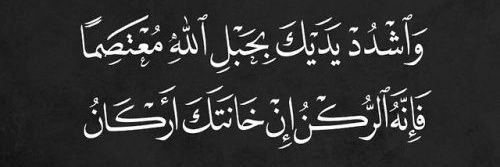 وَٱشْدُدْ يَدَيْكَ بِحَبْلِ ٱللَّهِ مُعْتَصِمًا
فَإِنَّهُ ٱلرُّكْنُ إِنْ خَانَتْكَ أَرْكَانُ